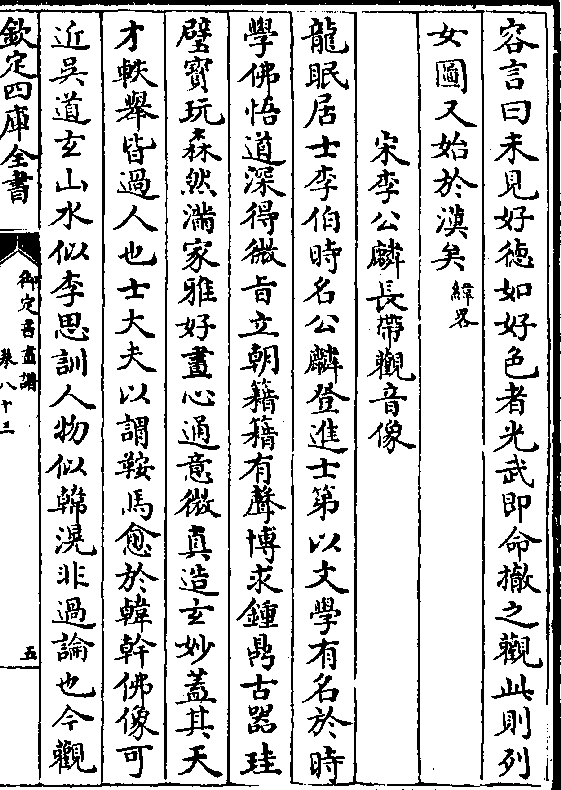 容言曰未見好徳如好色者光武即命撤之觀此則列
女圖又始於漢矣緯畧
宋李公麟長帶觀音像
龍眠居士李伯時名公麟登進士第以文學有名於時
學佛悟道深得微旨立朝籍籍有聲博求鍾鼎古器珪
璧寳玩森然滿家雅好畫心通意微真造玄妙葢其天
才軼舉皆過人也士大夫以謂鞍馬愈於韓幹佛像可
近吳道玄山水似李思訓人物似韓滉非過論也今觀
欽定四庫全書
御定書畫譜
卷八十三
五